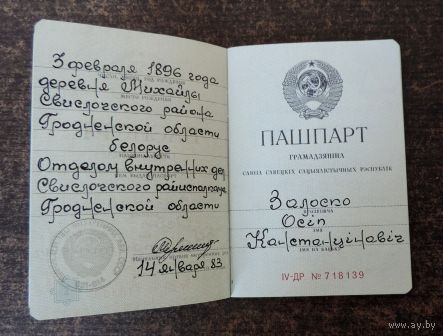 3 февраля 1896 года
деревня Михайлы
Свислочского района
Гродненской области
белорус
Отделом внутренних дел
Свислочского райисполкома
Гродненской области
14 января 83
ПАШПАРТ
ГРАМАДЗЯНІНА
САЮЗА САВЕЦКІХ САЦЫЯЛІСТЫЧНЫХ РЭСПУБЛІК
Залоско
Осіп
Канстанцінавіч
IV-ДР № 718139
www.ay.by